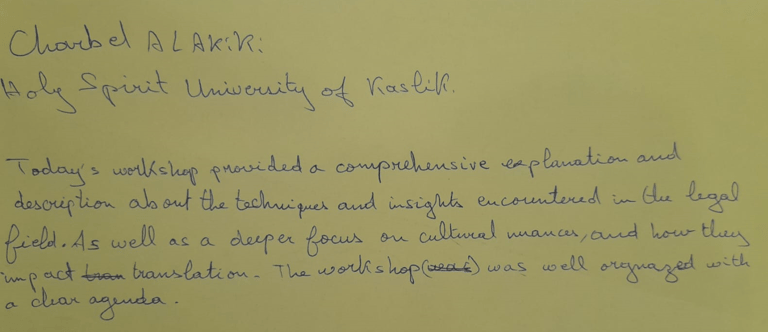 Charbel ALAKiKi
Holy Spirit University of Kaslik.
Today's workshop provided a comprehensive explanation and
description about the techniques and insights encountered in the legal
field. As well as a deeper focus on cultural nuances, and how they
impact tran translation. The workshop (was) was well orgnazed with
a clear agenda.